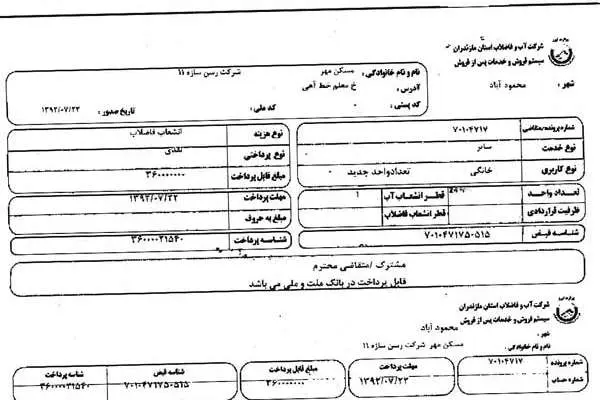 شرکت آب و فاضلاب استان مازندران
سیستم فروش و خدمات پس از فروش
شهر : محمود آباد
نام و نام خانوادگی : مسکن مهر شرکت رسن سازه ۱۱
آدرس : خ معلم خط آهی
کد پستی : ۰ کد ملی : تاریخ صدور : ۱۳۹۲/۰۷/۲۲
شماره پرونده/متقاضی ۷۰۱۰۴۷۱۷
نوع خدمت سایر
نوع کاربری خانگی تعدادواحد جدید
تعداد واحد
ظرفیت قراردادی
قطر انشعاب آب ۱
قطر انشعاب فاضلاب
شناسه قبض ۷۰۱۰۴۷۱۷۵۰۵۱۵
نوع هزینه انشعاب فاضلاب
نوع پرداختی نقدی
مبلغ قابل پرداخت ۳۶۰۰۰۰۰۰۰
مهلت پرداخت ۱۳۹۲/۰۷/۲۲
مبلغ به حروف
شناسه پرداخت ۳۶۰۰۰۰۲۱۵۴۰
مشترک /متقاضی محترم
قابل پرداخت در بانک ملت و ملی می باشد
شرکت آب و فاضلاب استان مازندران
سیستم فروش و خدمات پس از فروش
شهر : محمود آباد
نام و نام خانوادگی : مسکن مهر شرکت رسن سازه ۱۱
شماره پرونده ۷۰۱۰۴۷۱۷
شماره حساب
مهلت پرداخت
۱۳۹۲/۰۷/۲۲
مبلغ قابل پرداخت
۳۶۰۰۰۰۰۰۰
شناسه قبض
۷۰۱۰۴۷۱۷۵۰۵۱۵
شناسه پرداخت
۳۶۰۰۰۰۲۱۵۴۰